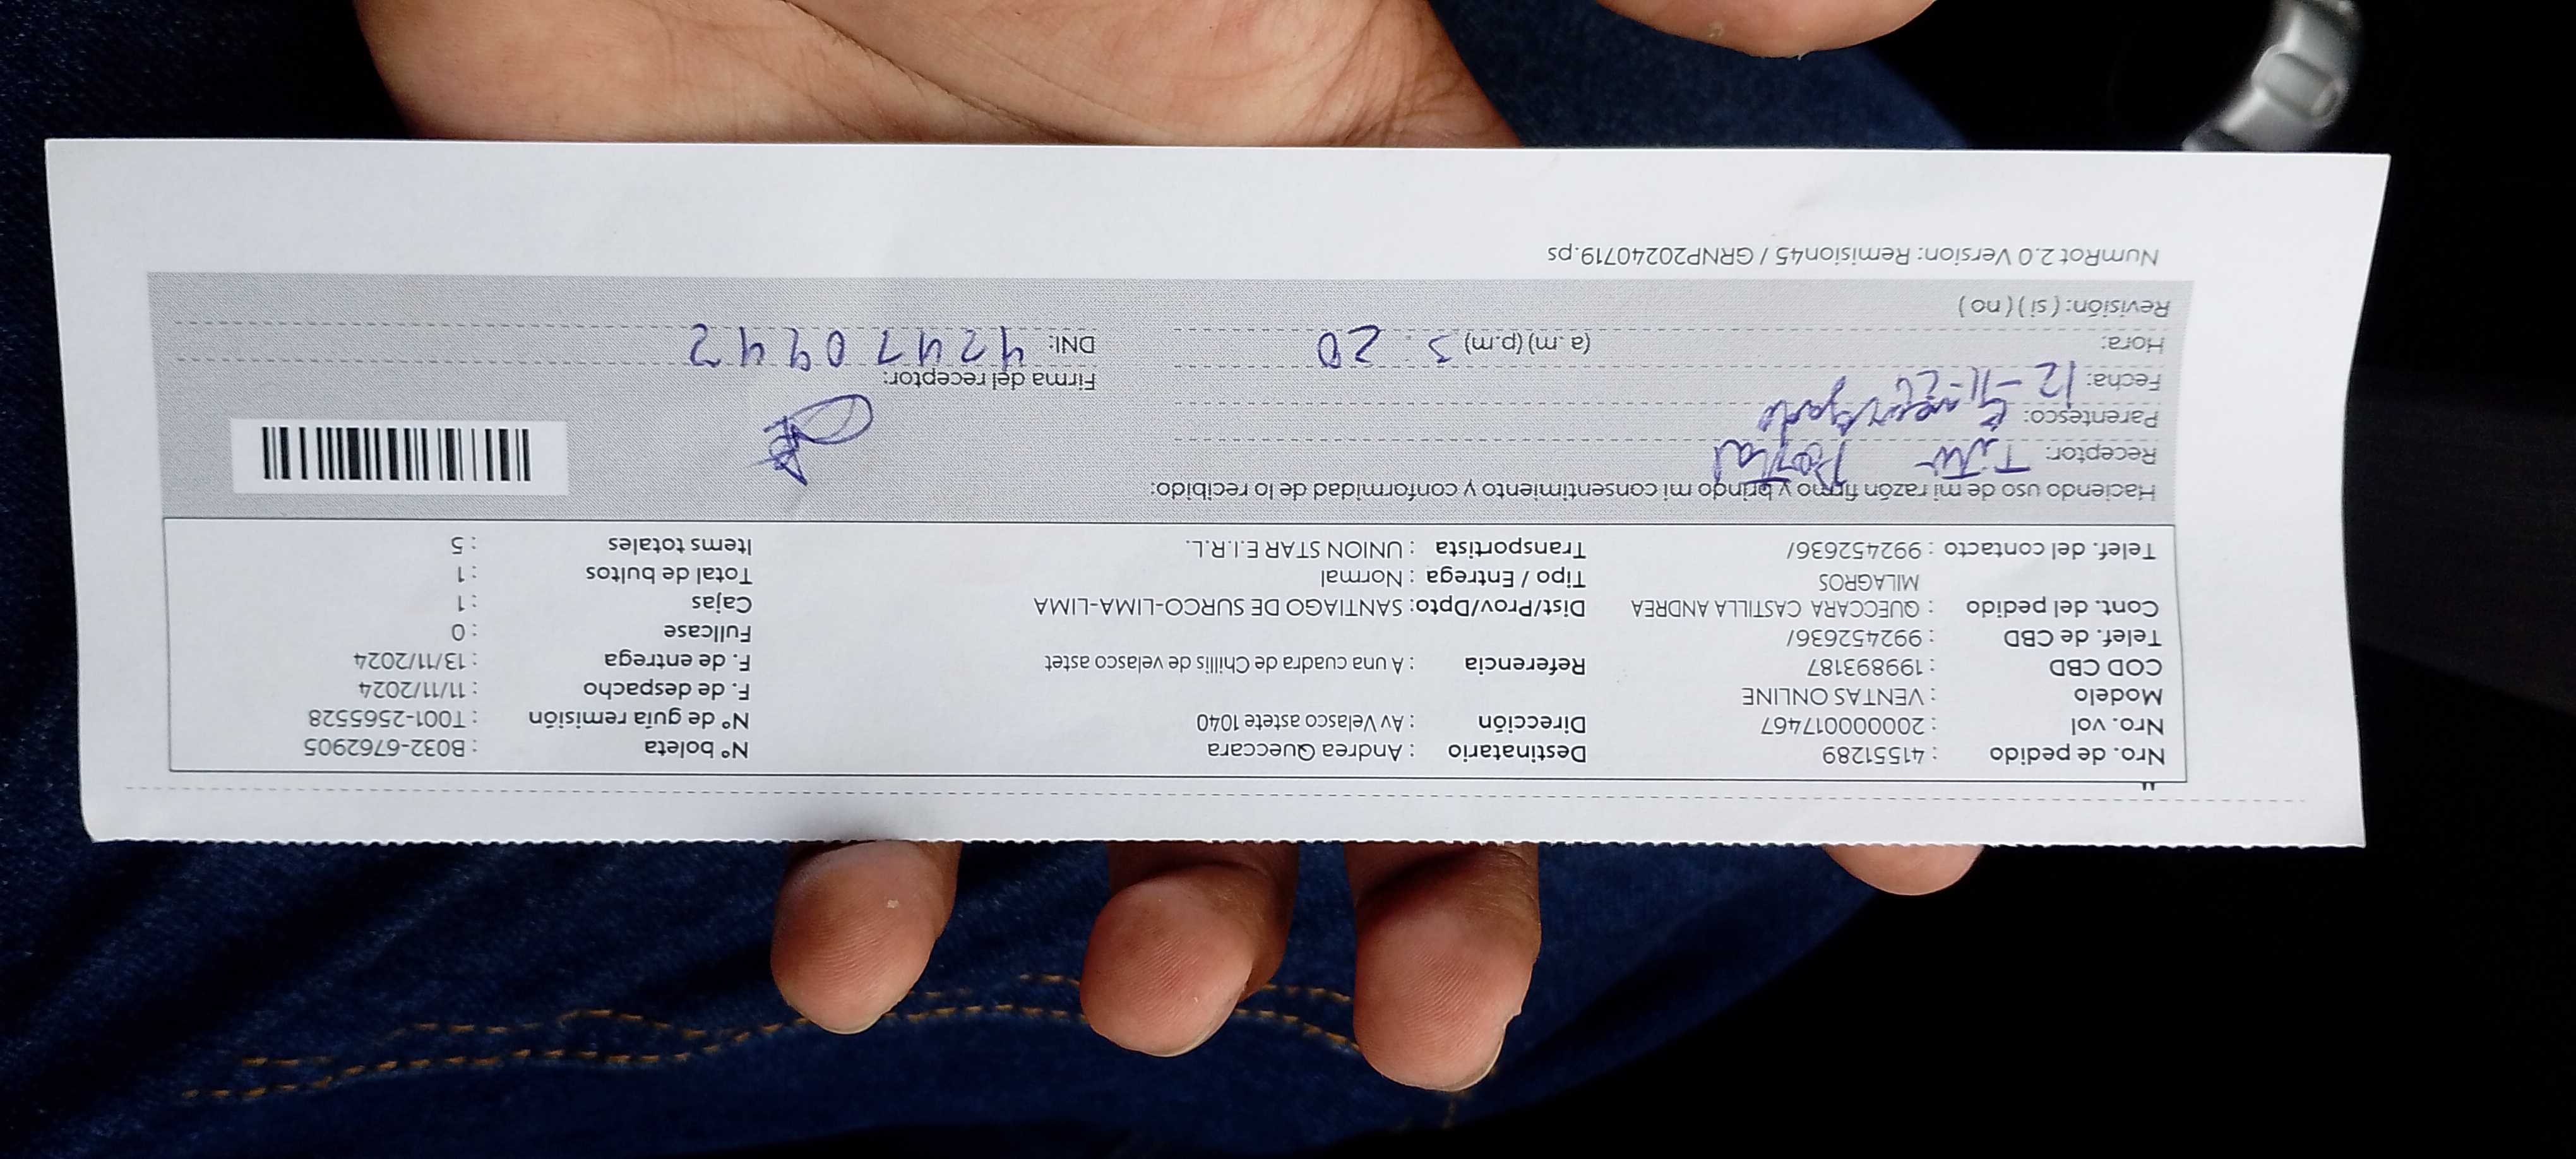 Nro. de pedido : 41551289 Destinatario : Andrea Queccara Nº boleta : B032-6762905
Nro. vol : 2000017467 Dirección : Av Velasco astete 1040 Nº de guía remisión : T001-2565528
Modelo : VENTAS ONLINE F. de despacho : 11/11/2024
COD CBD : 199893187 Referencia : A una cuadra de Chillis de velasco astet F. de entrega : 13/11/2024
Telef. de CBD : 992452636/ Fullcase : 0
Cont. del pedido : QUECCARA CASTILLA ANDREA Dist/Prov/Dpto: SANTIAGO DE SURCO-LIMA-LIMA Cajas : 1
MILAGROS Tipo / Entrega : Normal Total de bultos : 1
Telef. del contacto : 992452636/ Transportista : UNION STAR E.I.R.L. Items totales : 5
Haciendo uso de mi razón firmo y brindo mi consentimiento y conformidad de lo recibido:
Receptor:
Parentesco:
Fecha: 12-11-24 Firma del receptor:
Hora: (a.m) (p.m) 3:20 DNI: 42470942
Revisión: ( si ) ( no )
NumRot 2.0 Version: Remision45 / GRNP20240719.ps